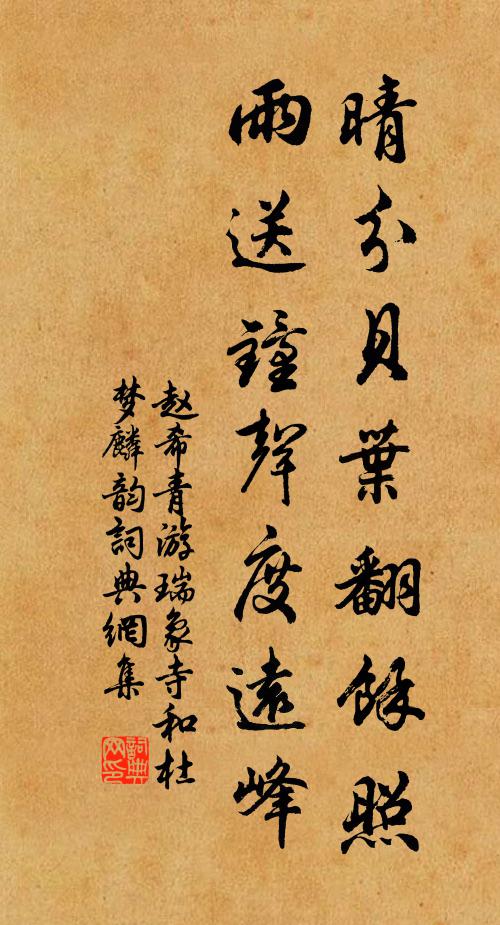 晴分貝葉翻餘照
雨送鐘聲度遠峰
赵希青游瑞象寺和杜
梦麟韵詞典網集
詞典網印